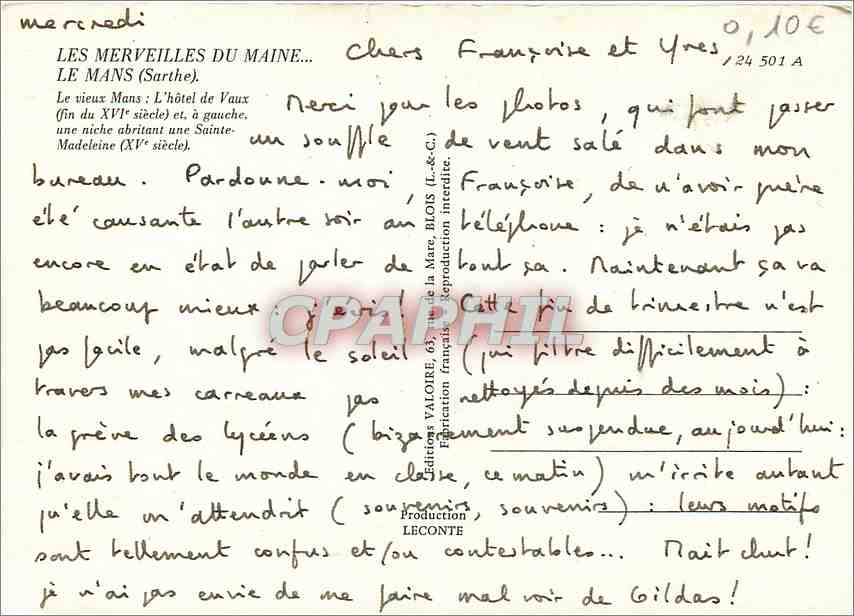 mercredi
0,10€
LES MERVEILLES DU MAINE...
LE MANS (Sarthe).
Le vieux Mans : L'hôtel de Vaux
(fin du XVIe siècle) et, à gauche,
une niche abritant une Sainte-
Madeleine (XVe siècle).
24 501 A
Chers Françoise et Yves,
Merci pour les photos, qui font passer
un souffle de vent salé dans mon
bureau. Pardonne-moi, Françoise, de n'avoir guère
été causante l'autre soir au téléphone : je n'étais pas
encore en état de parler de tout ça. Maintenant ça va
beaucoup mieux : j'écris! Cette fin de trimestre n'est
pas facile, malgré le soleil (qui filtre difficilement à
travers mes carreaux pas nettoyés depuis des mois) :
la grève des lycéens (bizarrement suspendue, aujourd'hui :
j'avais tout le monde en classe, ce matin) m'irrite autant
qu'elle m'attendrit (souvenirs, souvenirs) : leurs motifs
sont tellement confus et/ou contestables... Mait chut!
je n'ai pas envie de me faire mal voir de Gildas!
Editions VALOIRE, 63, rue de la Mare, BLOIS (L.-&-C.)
Fabrication française - Reproduction interdite.
Production
LECONTE
CPAPHIL